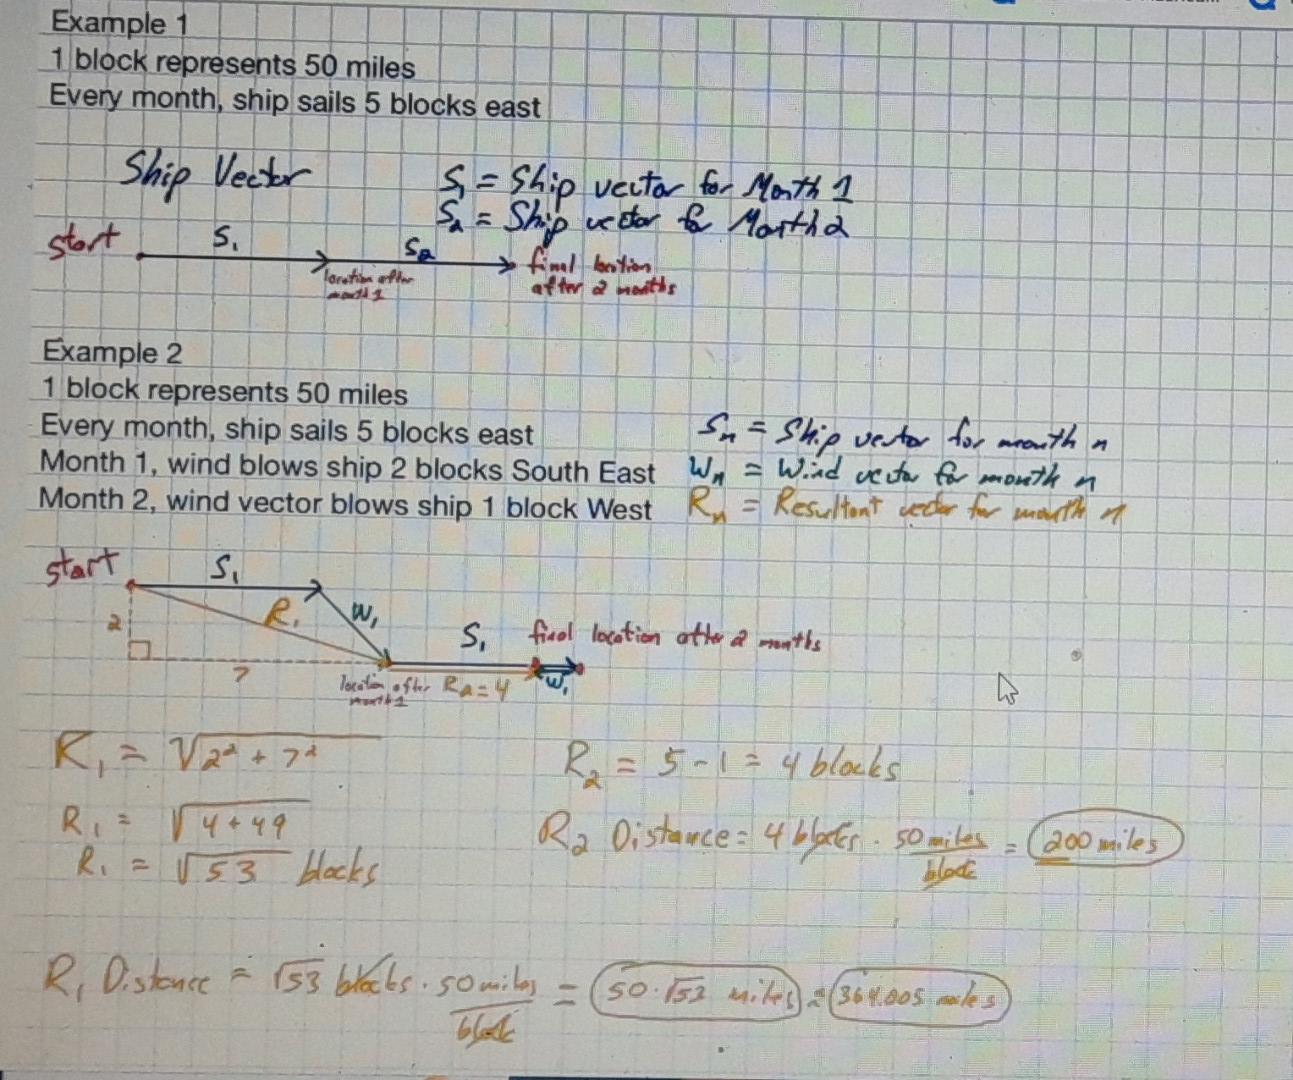 Example 1
1 block represents 50 miles
Every month, ship sails 5 blocks east
Ship Vector
S₁ = Ship vector for Month 1
S₂ = Ship vector for Month 2
start
S₁
S₂
location after
month 1
final location
after 2 months
Example 2
1 block represents 50 miles
Every month, ship sails 5 blocks east
Month 1, wind blows ship 2 blocks South East
Month 2, wind vector blows ship 1 block West
Sₙ = Ship vector for month n
Wₙ = Wind vector for month n
Rₙ = Resultant vector for month n
start
S₁
R₁
W₁
2
7
S₁
final location after 2 months
location after
month 1
R₂ = 4
W₁
R₁ = √2² + 7²
R₁ = √4 + 49
R₁ = √53 blocks
R₂ = 5 - 1 = 4 blocks
R₂ Distance = 4 blocks · 50 miles/block = 200 miles
R₁ Distance = √53 blocks · 50 miles/block = 50·√53 miles ≈ 364.005 miles